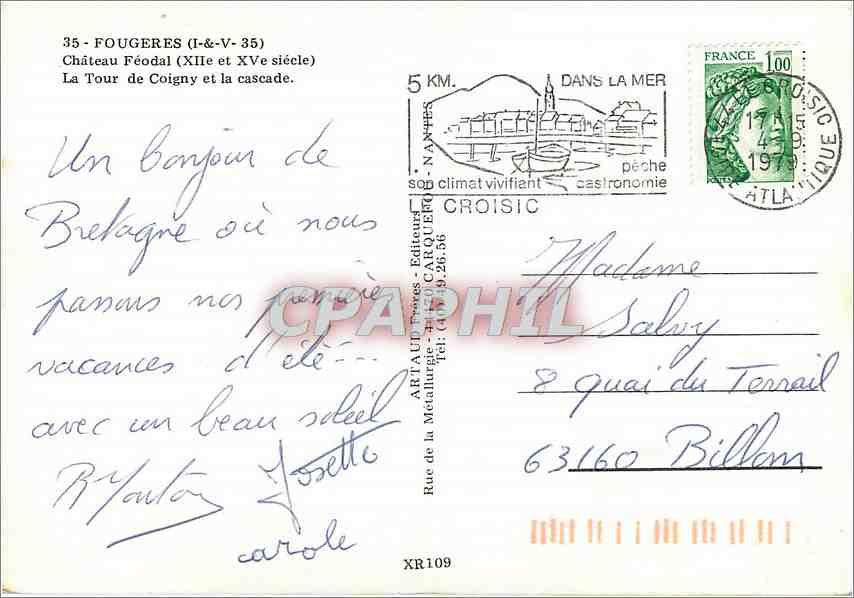 35 - FOUGERES (I-&-V- 35)
Château Féodal (XIIe et XVe siécle)
La Tour de Coigny et la cascade.
Un bonjour de
Bretagne où nous
passons nos premières
vacances d'été---
avec un beau soleil
Josette
carole
ARTAUD Frères - Editeurs
Rue de la Métallurgie - 44470 CARQUEFOU - NANTES
Tél: (40) 49.26.56
XR109
5 KM. DANS LA MER
pêche
son climat vivifiant gastronomie
LE CROISIC
FRANCE 1,00
LE CROISIC
17H15
4-9
1979
LOIRE ATLANTIQUE
Madame
Salvy
8 quai du Terrail
63160 Billom
CPAPHIL